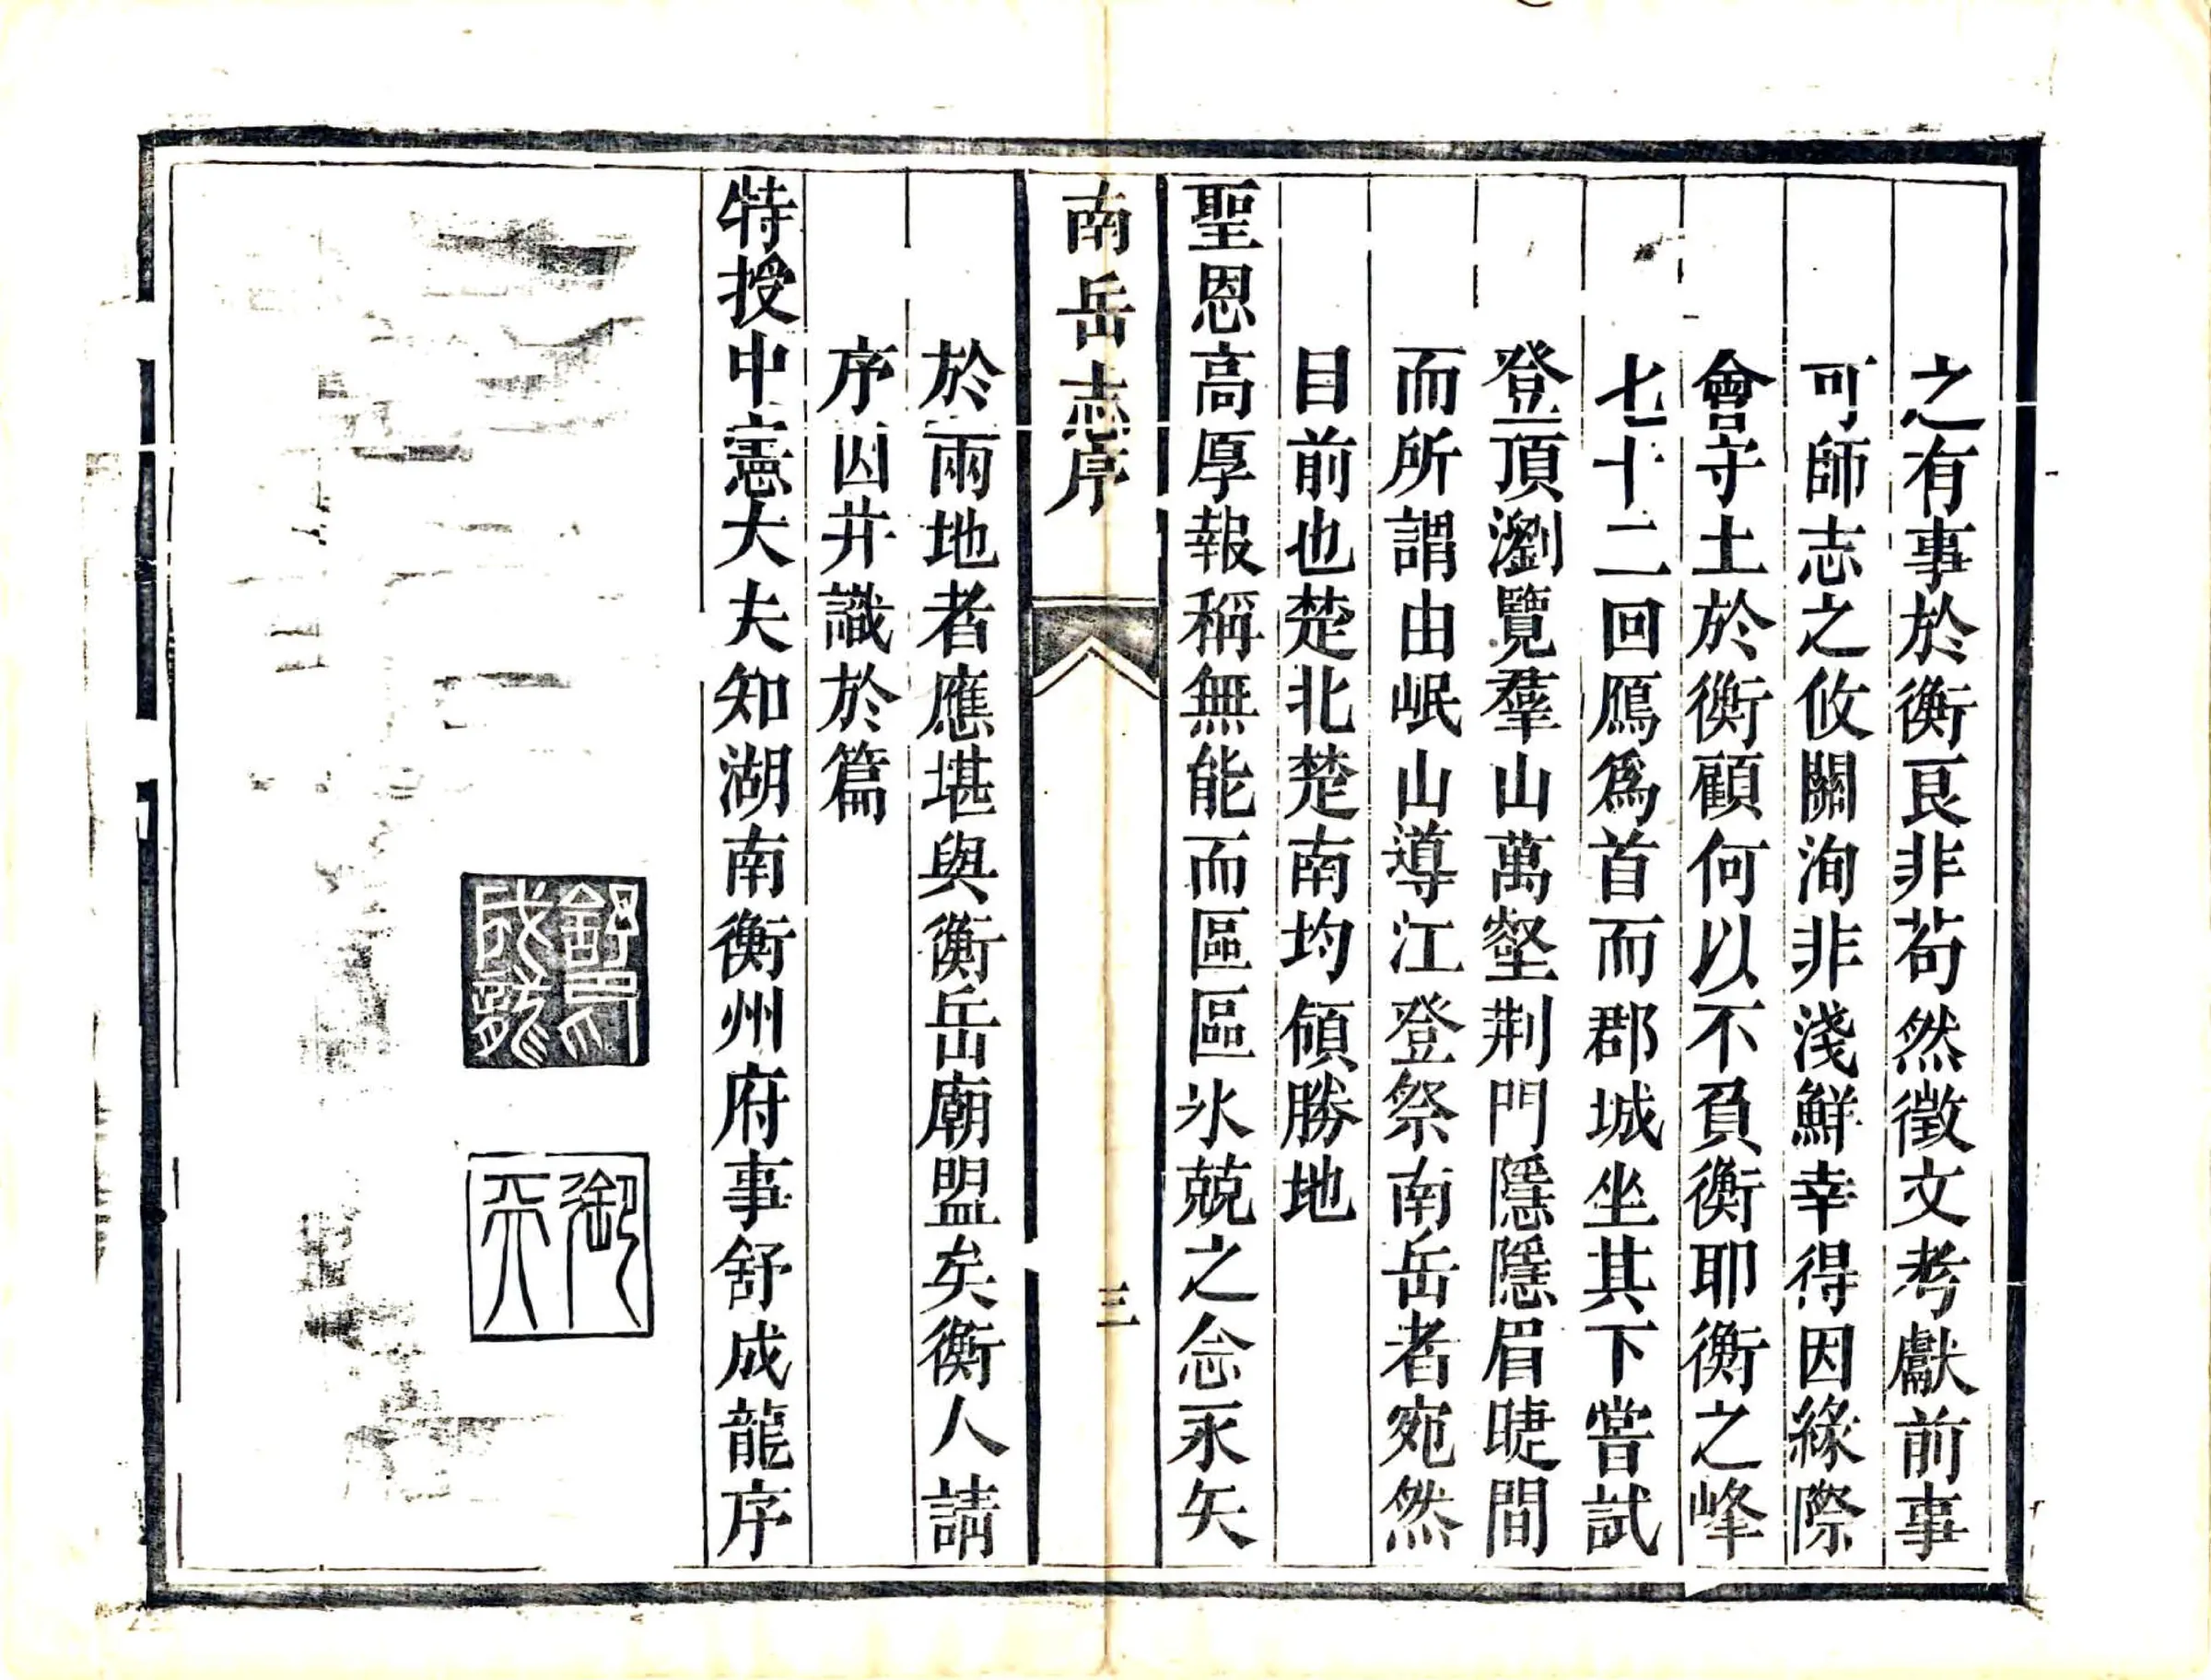 之有事於衡良非苟然徵文考獻前事
可師志之攸關洵非淺鮮幸得因緣際
會守土於衡顧何以不負衡耶衡之峰
七十二回鴈爲首而郡城坐其下嘗試
登頂瀏覽羣山萬壑荆門隱隱眉睫間
而所謂由岷山導江登祭南岳者宛然
目前也楚北楚南均傾勝地
聖恩高厚報稱無能而區區氷兢之念永矢
南岳志序
三
於兩地者應堪與衡岳廟盟矣衡人請
序因并識於篇
特授中憲大夫知湖南衡州府事舒成龍序
舒印
成龍
御
天